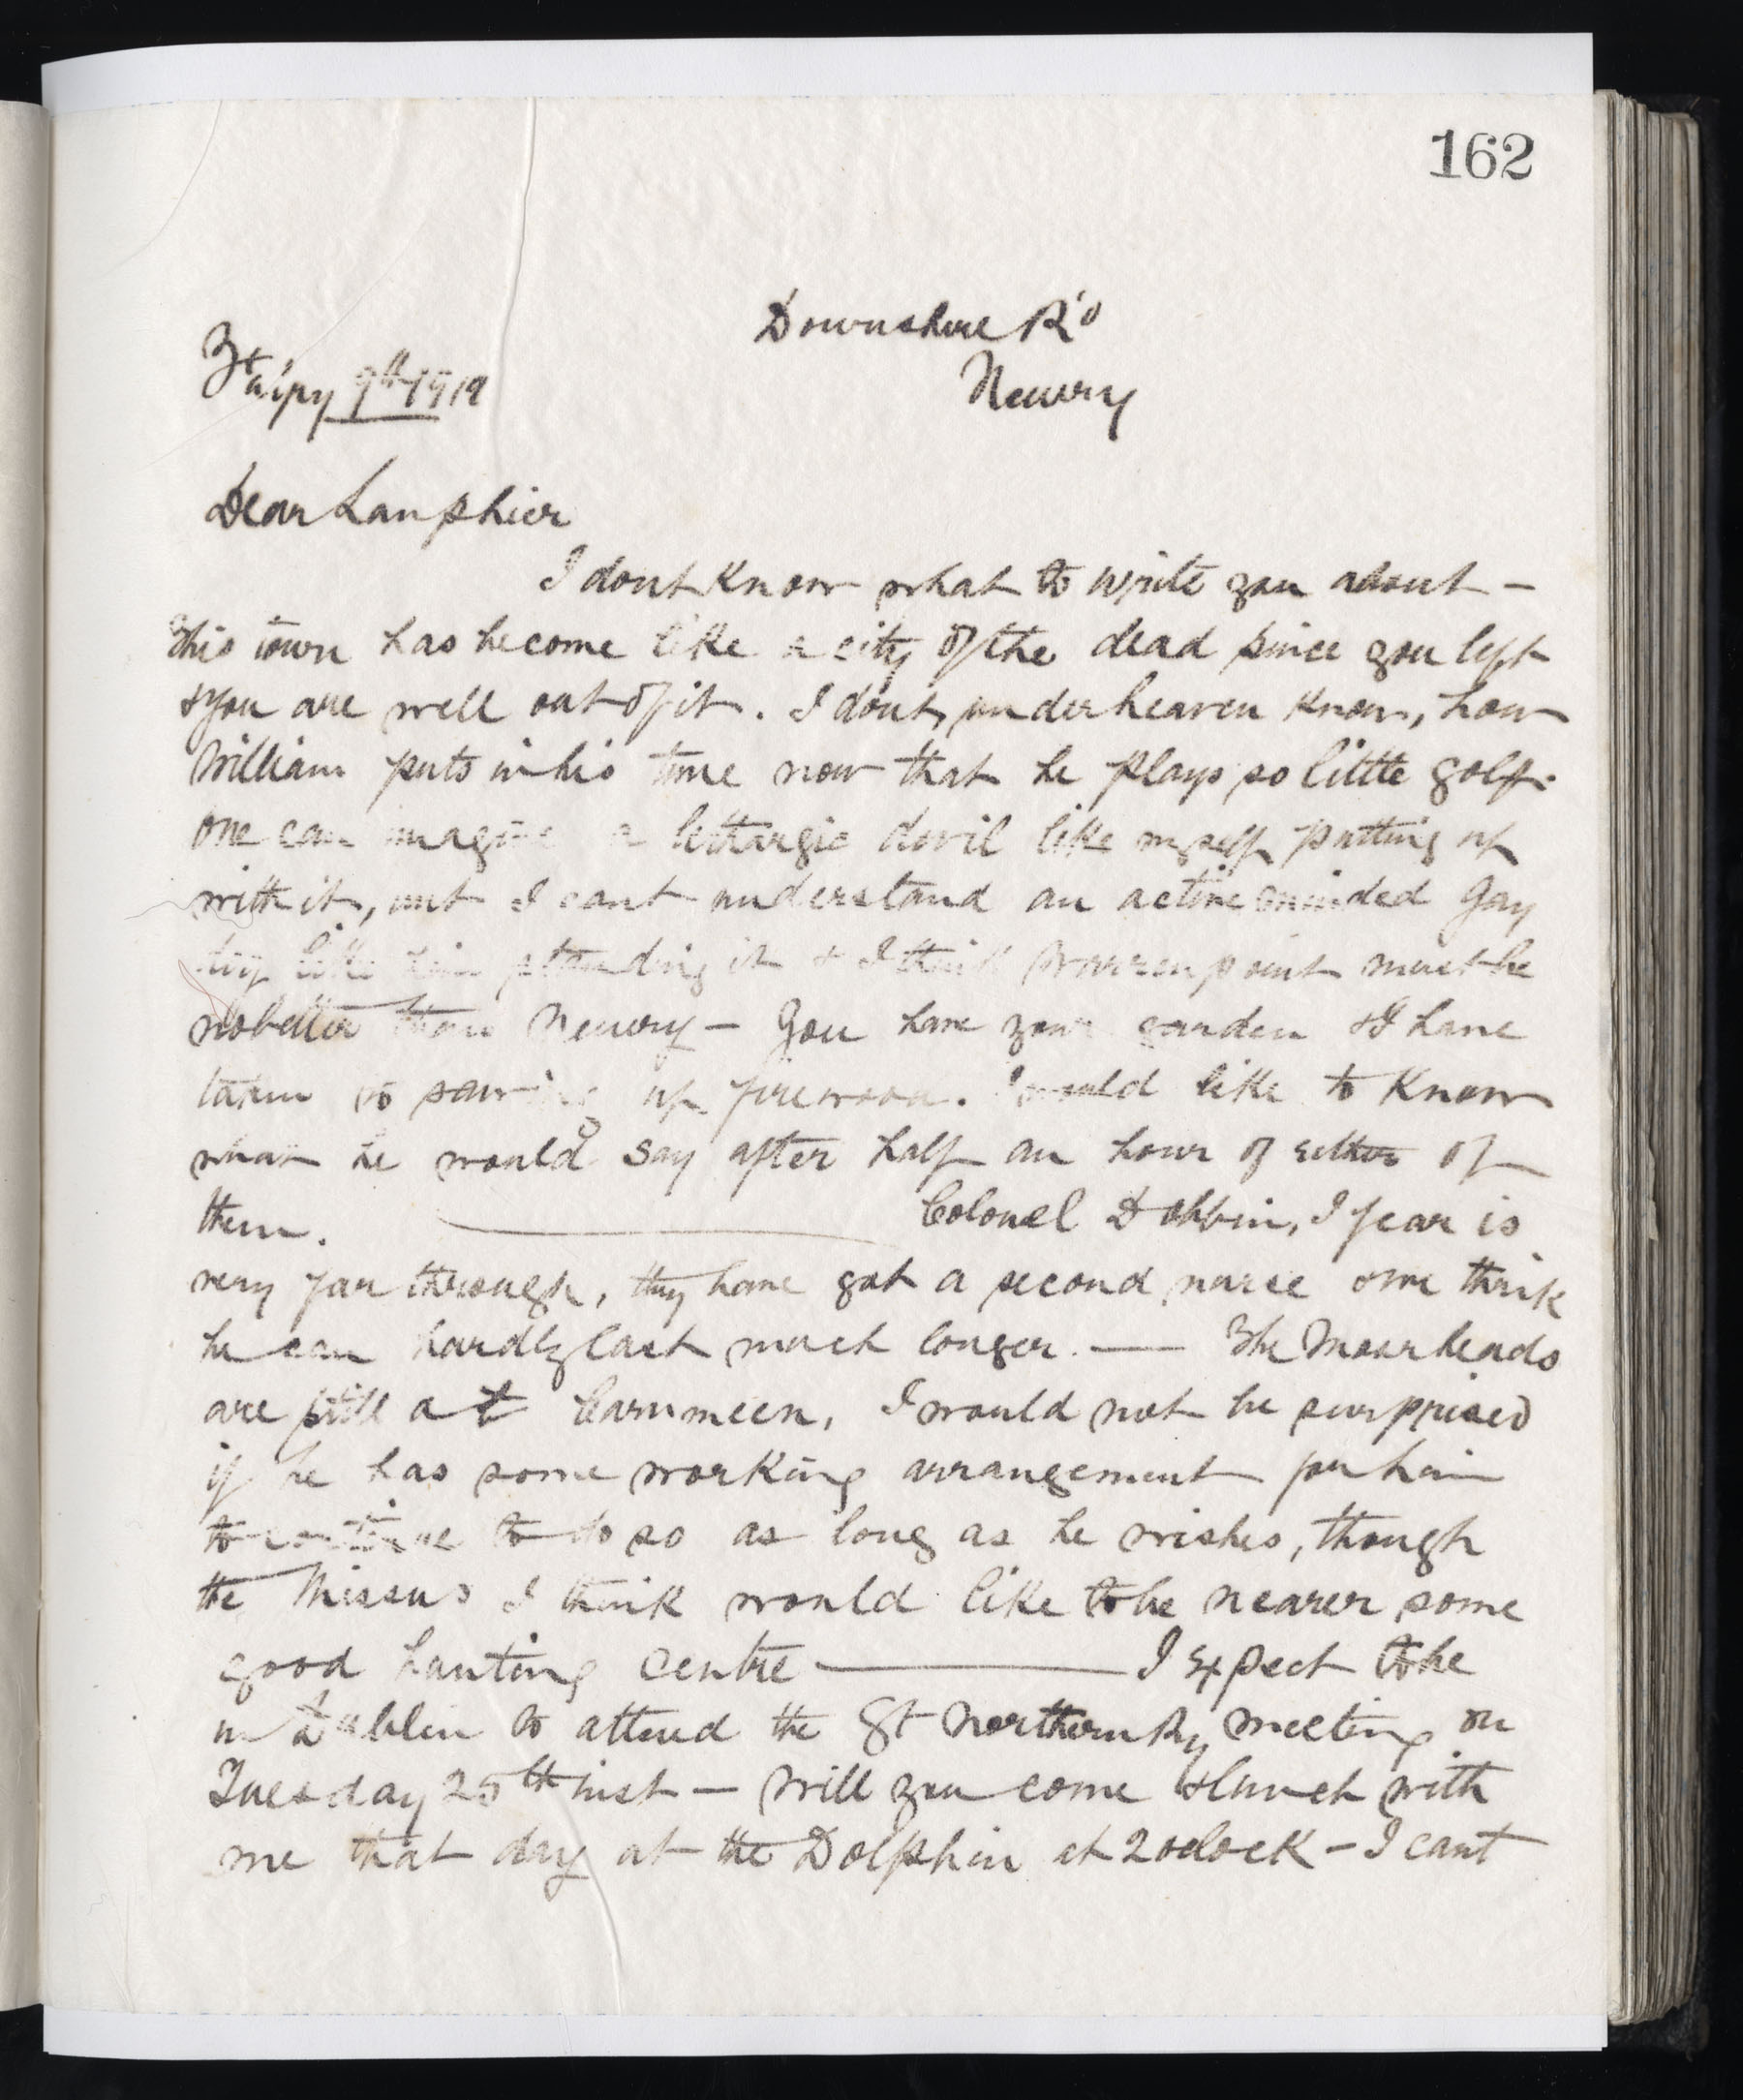 162
Downshire Rd
Newry
9th 1919
Dear Lanphier
I dont know what to write you about –
This town has become like a city of the dead since you left
& you are well out of it. I dont, under heaven know, how
William puts in his time now that he plays so little golf.
One can imagine a lethargic devil like myself putting up
with it, but I cant understand an active minded gay
dog like him standing it & I think Warrenpoint must be
no better than Newry – You have your garden & I have
taken to sawing up firewood. I would like to know
what he would say after half an hour of either of
them. —— Colonel Dobbin, I fear is
very far through, they have got a second nurse & we think
he can hardly last much longer. — The Moorheads
are still at Carnmeen, I would not be surprised
if he has some working arrangement for him
to continue to do so as long as he wishes, though
the Missus I think would like to be nearer some
good hunting centre —— I expect to be
in Dublin to attend the Gt Northern Ry meeting on
Tuesday 25th inst – Will you come & lunch with
me that day at the Dolphin at 2 oclock – I cant